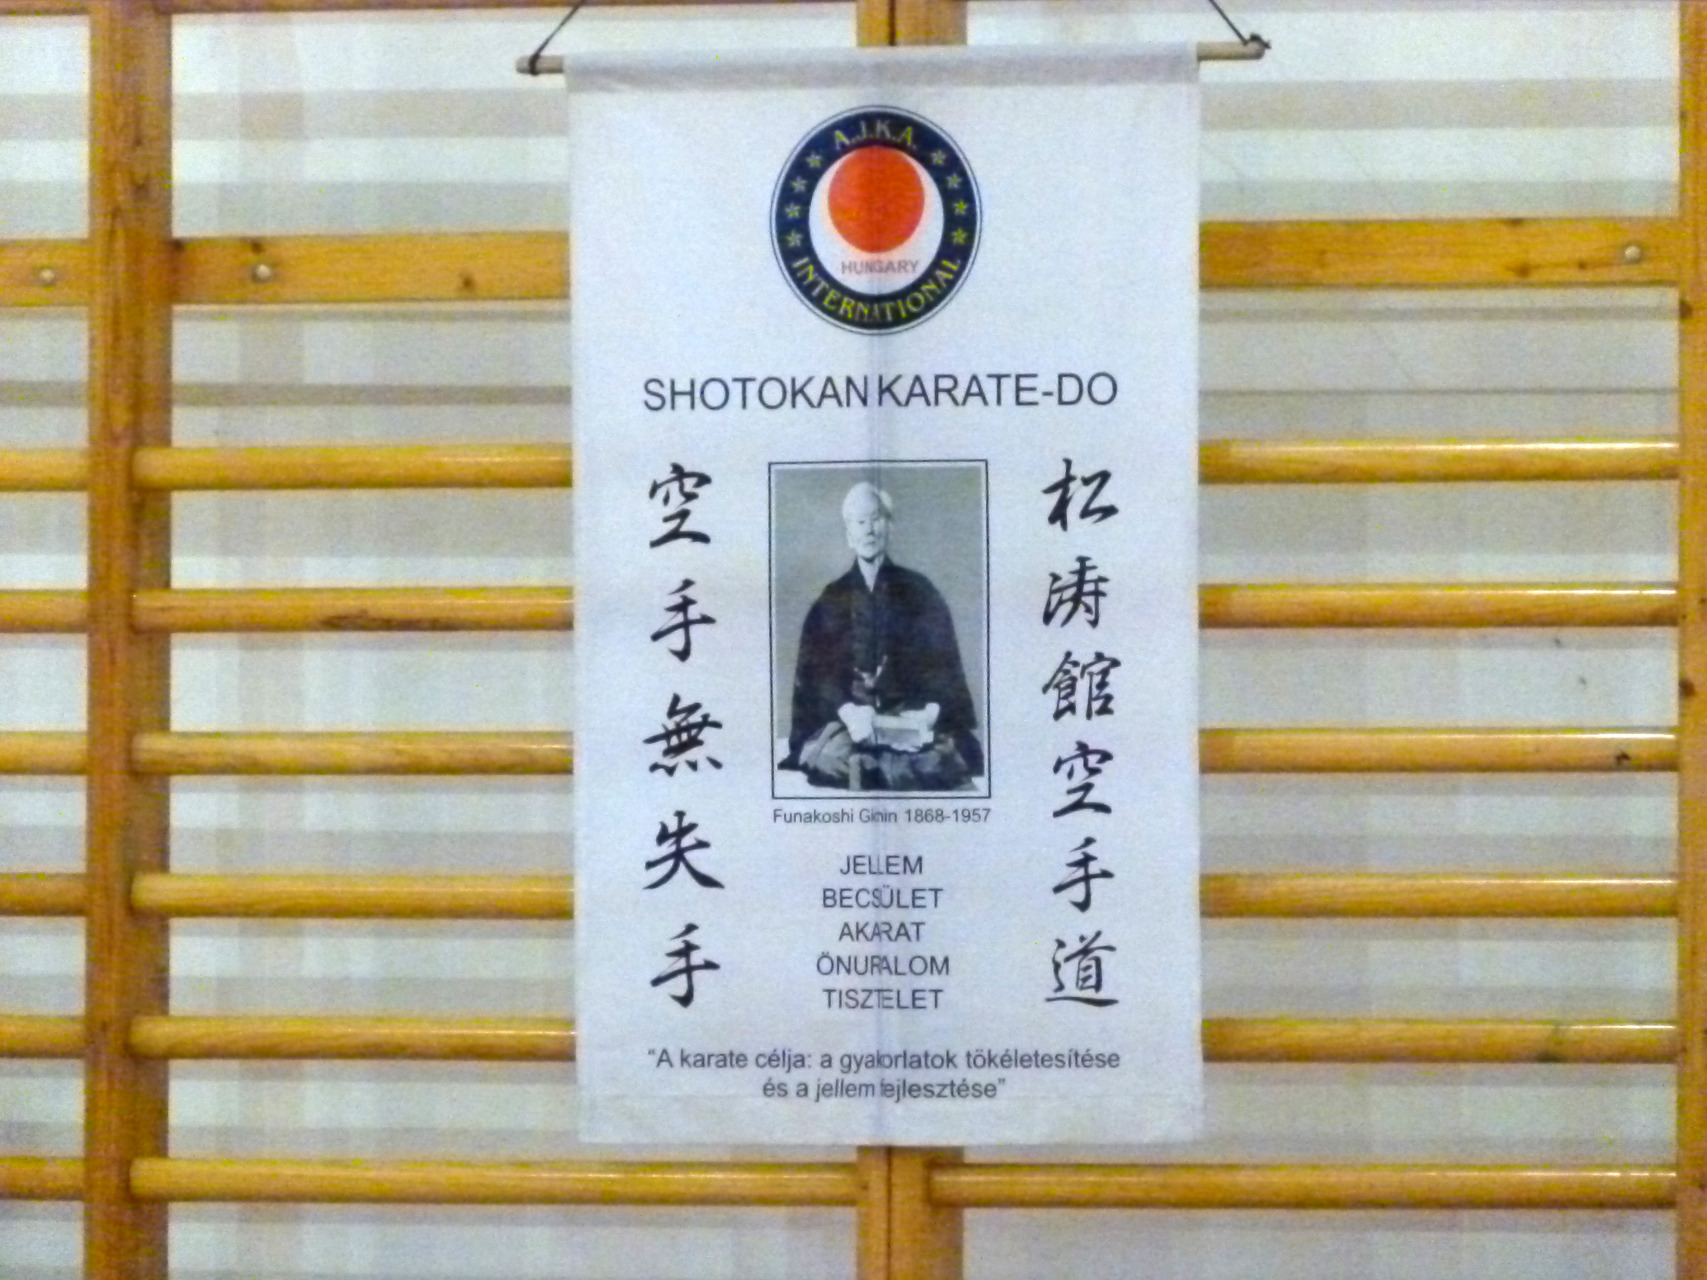 A.J.K.A.
HUNGARY
INTERNATIONAL
SHOTOKAN KARATE-DO
空手無失手
松涛館空手道
Funakoshi Gichin 1868-1957
JELLEM
BECSÜLET
AKARAT
ÖNURALOM
TISZTELET
“A karate célja: a gyakorlatok tökéletesítése
és a jellem fejlesztése”